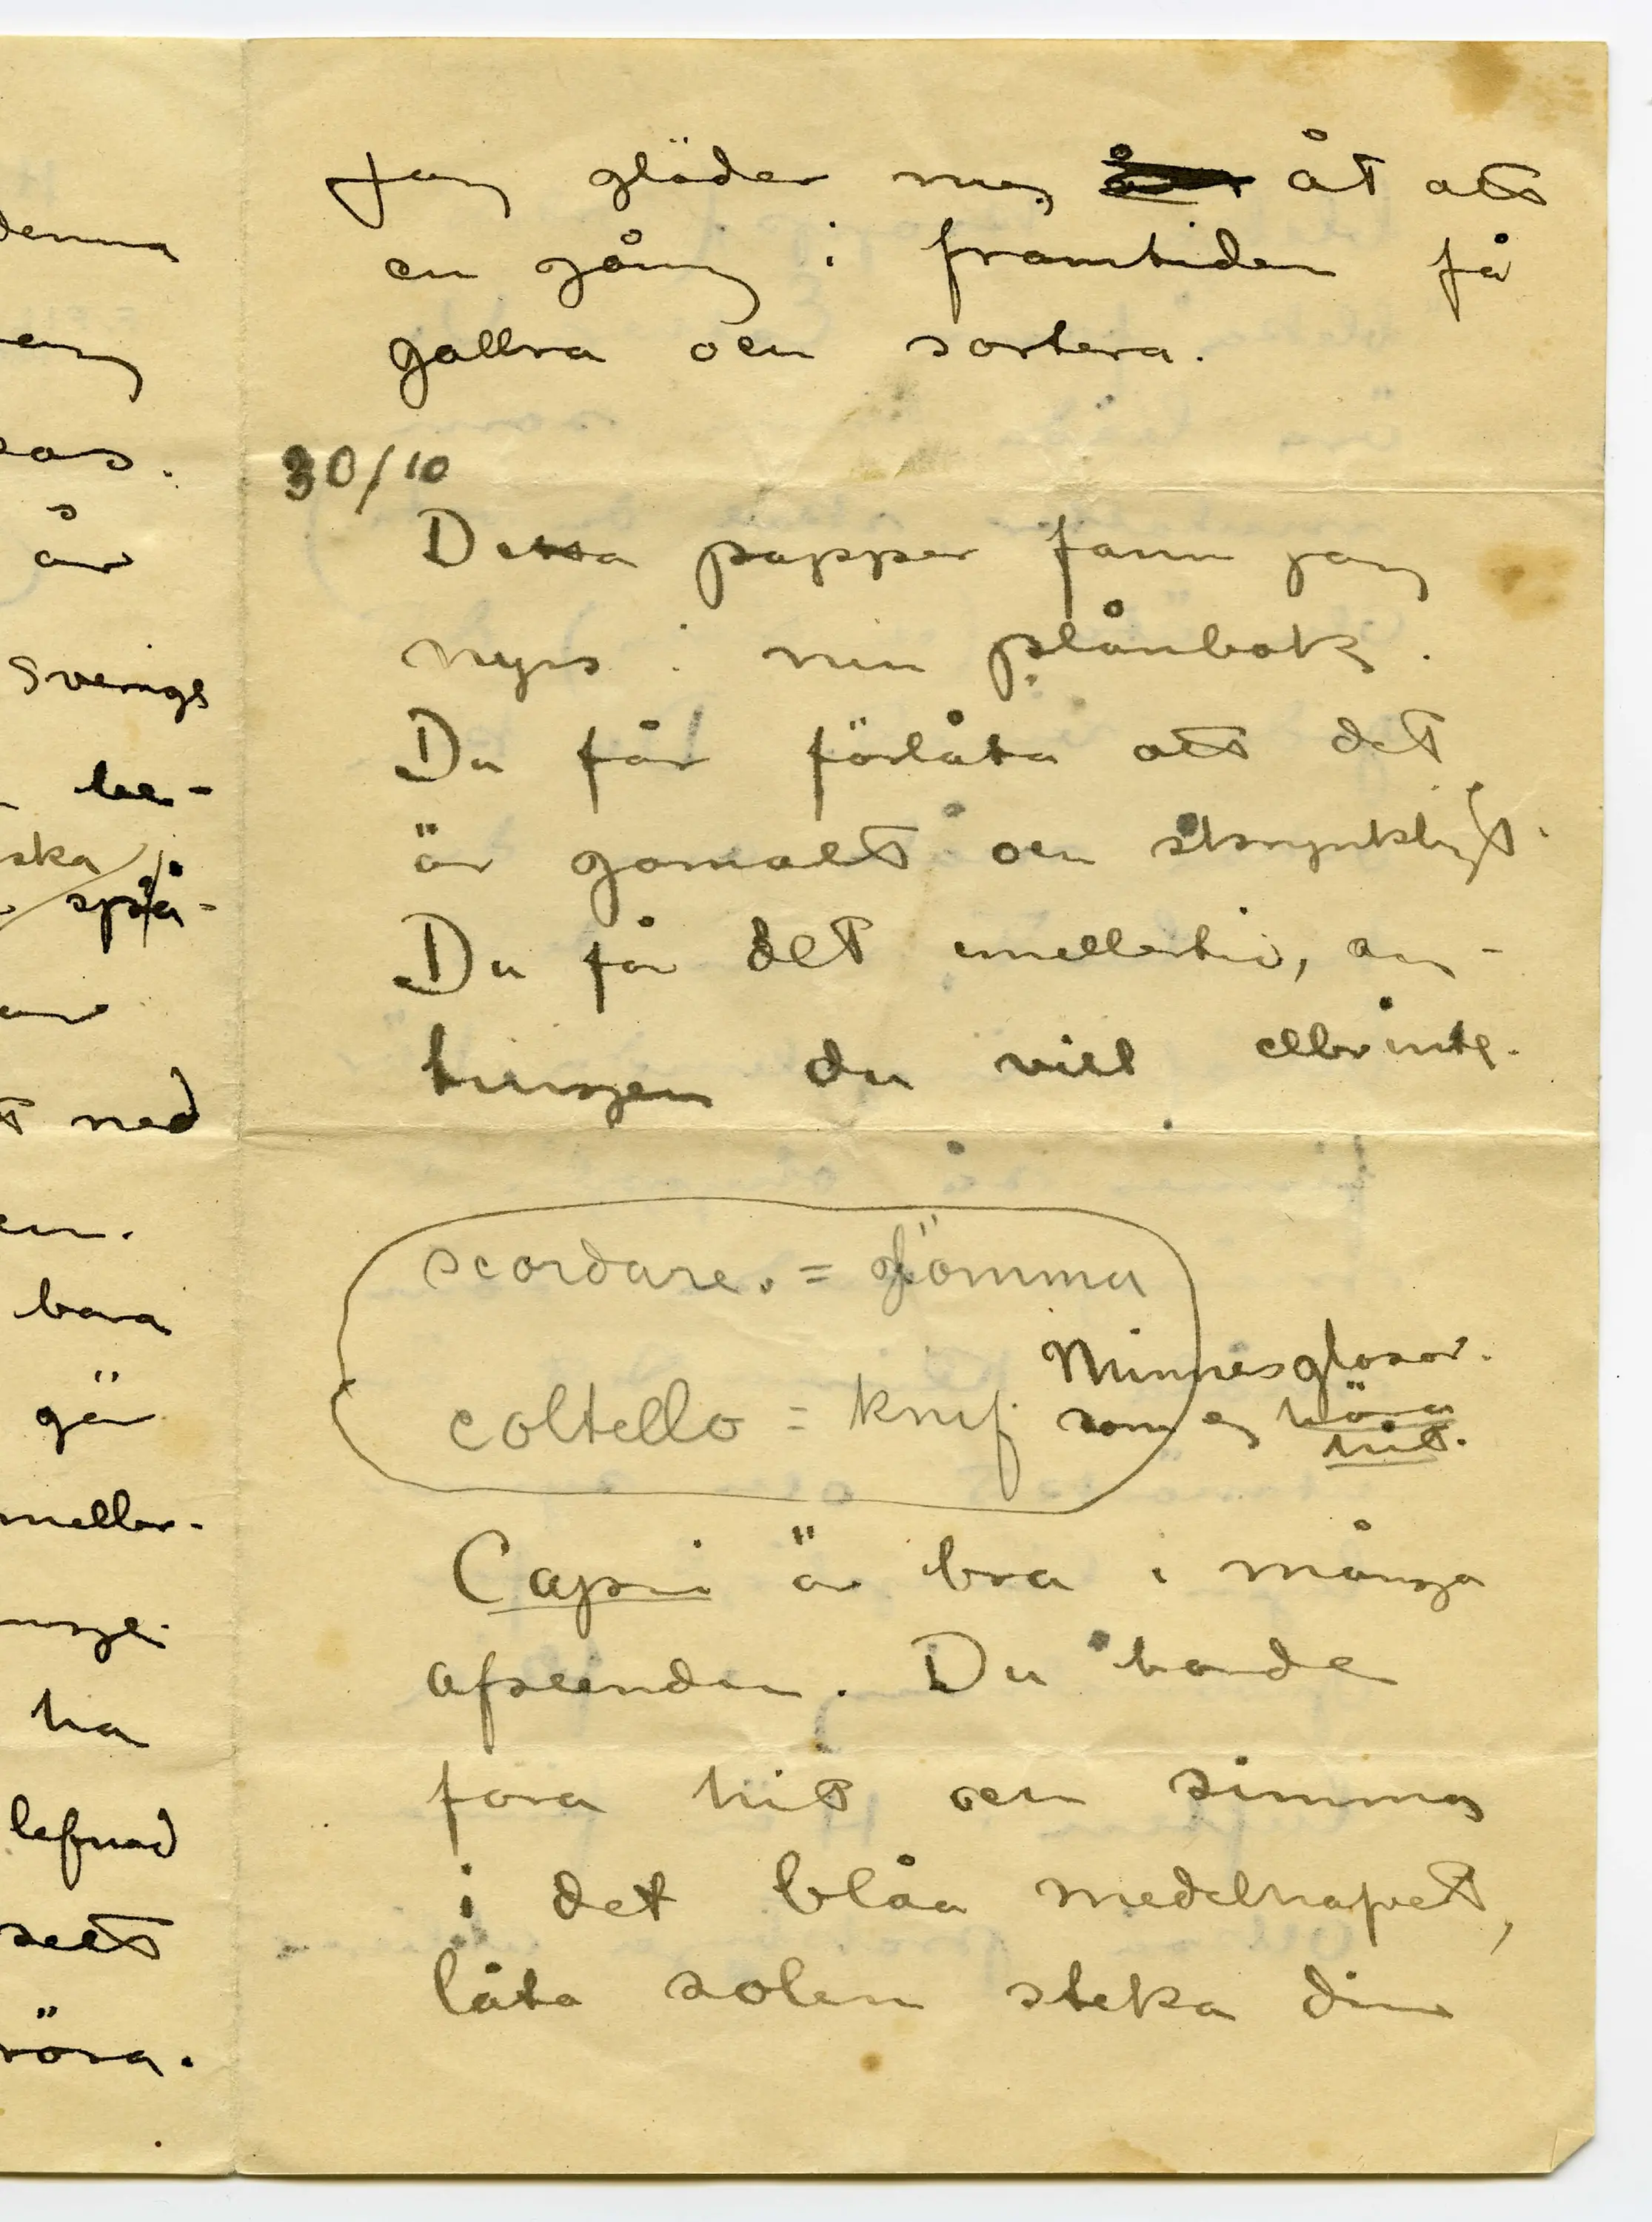 denna
eas.
år
Sverige
be-
ska
språ-
ned
bara
går
meller-
ha
lefnad
sett
röra.
Jag gläder mig åt att
en gång i framtiden få
gallra och sortera.
30/10
Detta papper fann jag
nyss i min plånbok.
Du får förlåta att det
är gamalt och skrynkligt.
Du får det emellertid, an-
tingen du vill eller inte.
scordare. = glömma
coltello = knif
Minnesglosor.
som ej höra
hit.
Capri är bra i många
afseenden. Du borde
fara hit och simma
i det blåa medelhafvet,
låta solen steka din